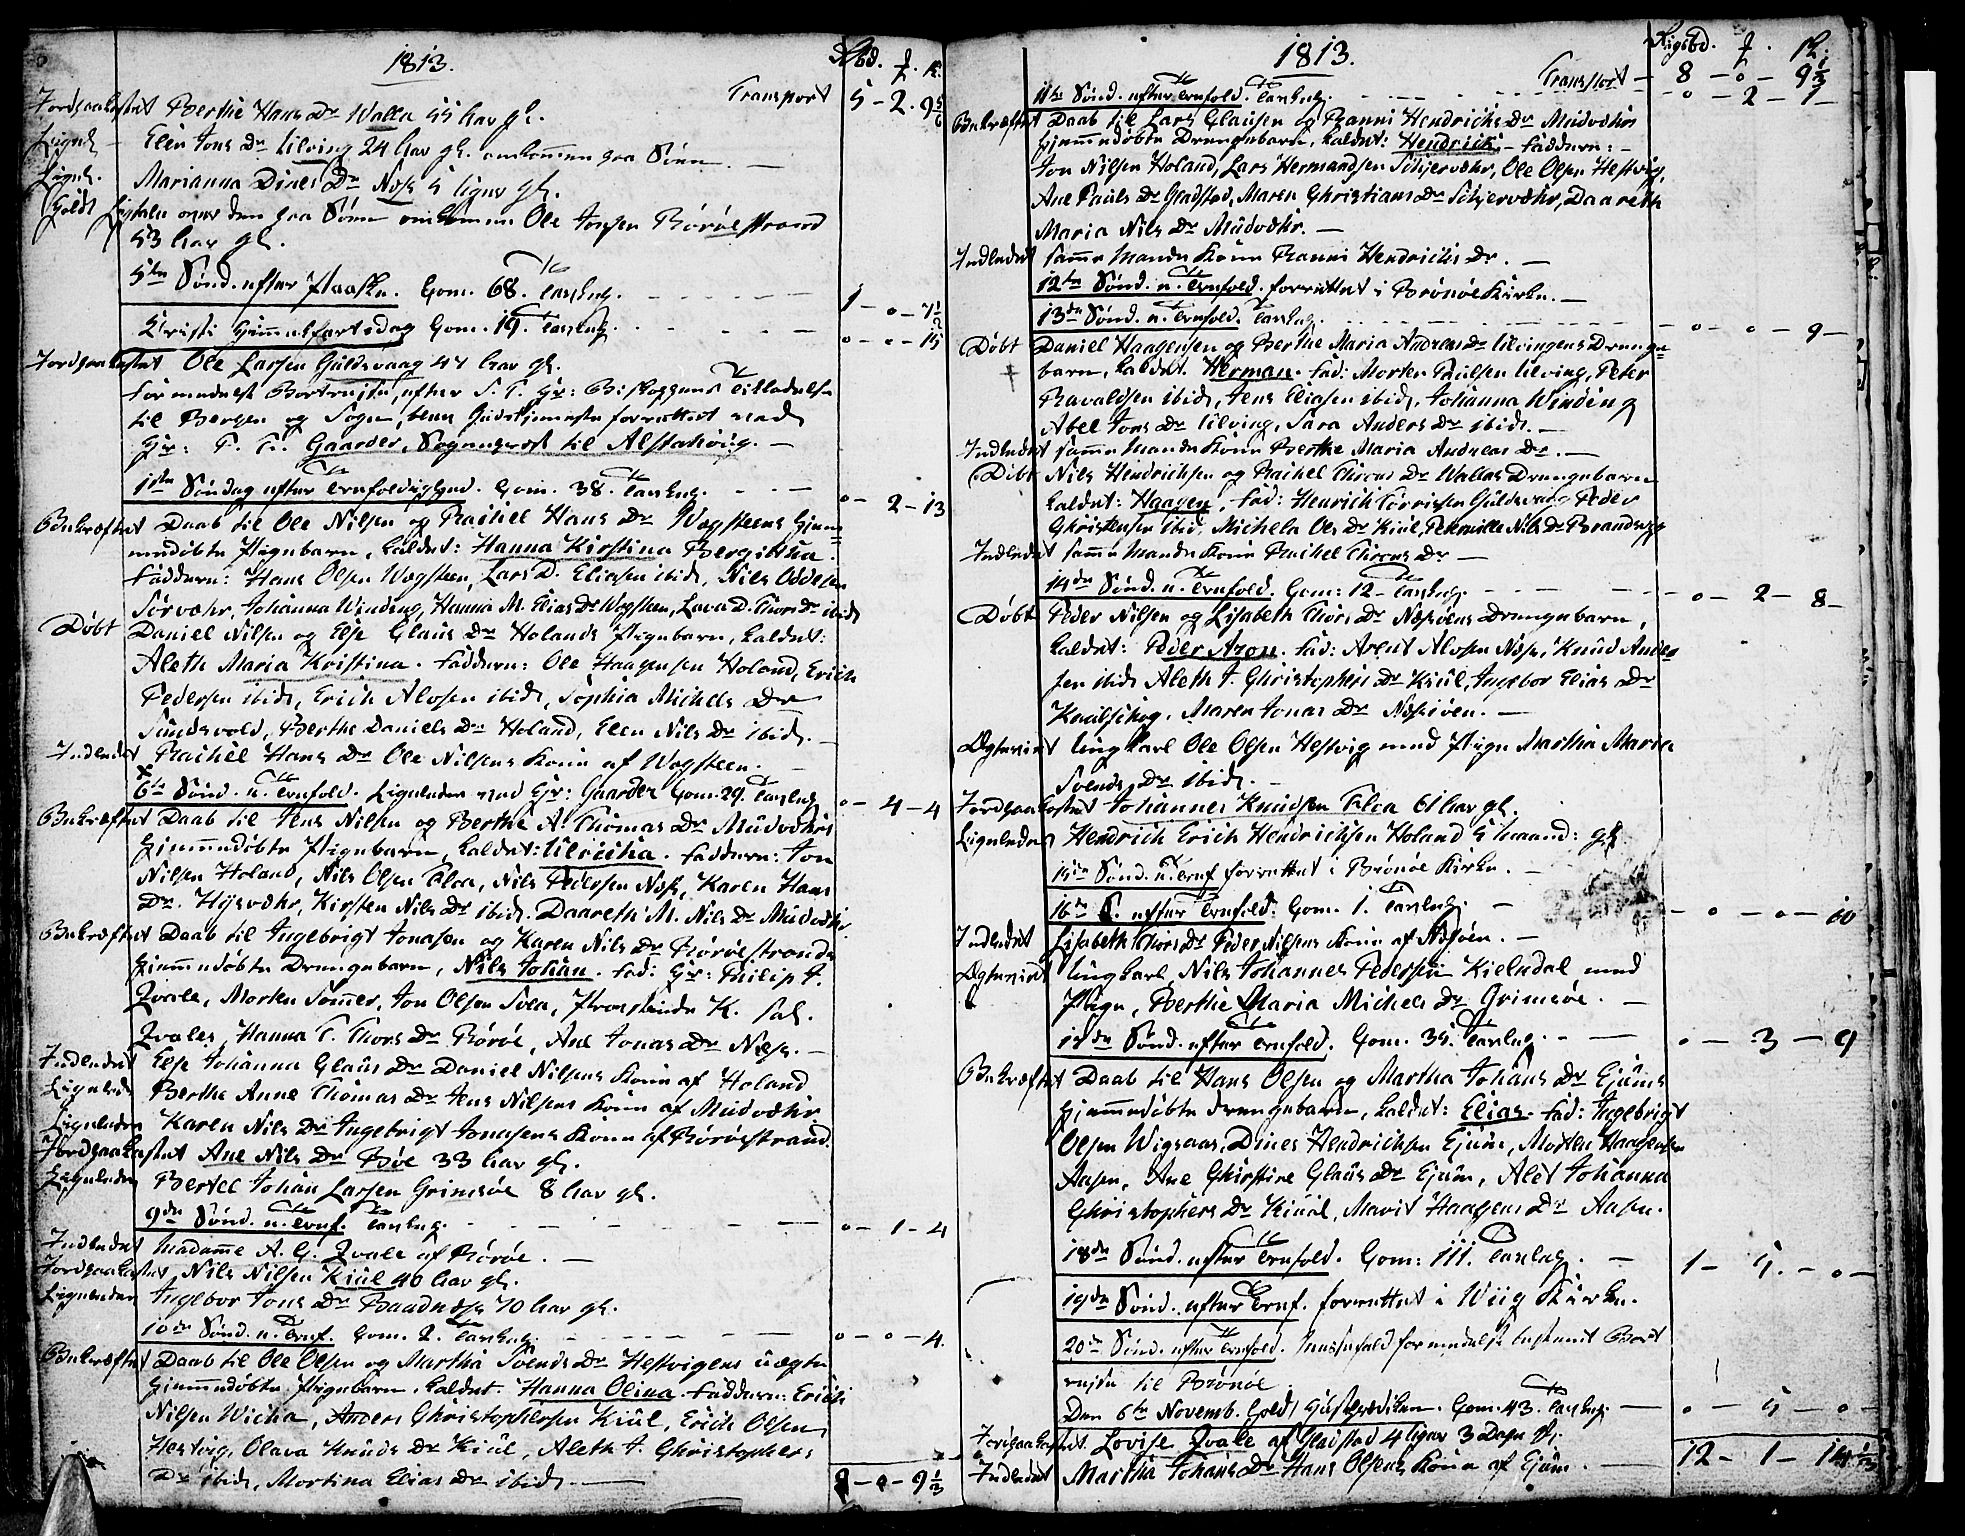 1813.
Rbd. ƒ. 12.
Transport 5 - 2 - 9
Jordpaakastet Berthe Hans Dr Walla 55 Aar gl.
Ligel. Elen Jons Dr Tilving 24 Aar gl. omkommen paa Søen
Ligel. Marianna Dines Dr Næss 5 Uger gl.
Holdt Ligtale over den paa Søen omkomne Ole Jonsen Rørøestrand
53 Aar gl.
5te Sønd. efter Paaske. Com. 68. Tavlep. 1 - 0 - 7½
Christi Himmelfartsdag Com. 19. Tavlep. 0 - 0 - 15
Jordpaakastet Ole Larsen Guldsvaag 47 Aar gl.
Formedelst Bortrejse, efter S. T. Hr: Biskoppens Tilladelse
til Bergen og Sogn, blev Gudstjeneste forrettet ved
Hr: Gaarder, Sognepræst til Alstahoug.
1ste Søndag efter Trefoldighed. Com. 38. Tavlep. 0 - 2 - 13
Bekræftet Daab til Ole Nilsen og Rachel Hans Dr Wogsteens hjem-
medøbte Pigebarn, kaldet: Hanna Kirstina Bergitha.
Fadderne: Hans Olsen Wogsteen, Lars D. Eliasen ibid, Nils Oddesen
Sørvæhr, Johanna Winding, Hanna M. Elias Dr Wogsteen, Lava D. Thors Dr ibid
Døbt Daniel Nilsen og Else Claus Dr Holands Pigebarn, kaldet:
Aleth Maria Kristina. Fadderne: Ole Haagensen Holand, Erich
Pedersen ibid, Erich Alosen ibid, Sophia Michels Dr
Sundsvold, Berthe Daniels Dr Holand, Elen Nils Dr ibid.
Indledet Rachel Hans Dr Ole Nilsens Kone af Wogsteen.
6te Sønd. e. Trefold. Ligeledes ved Hr: Gaarder Com. 29. Tavlep. 0 - 4 - 4
Bekræftet Daab til Jens Nilsen og Berthe A. Thomas Dr Mudvæhrs
hjemmedøbte Pigebarn, kaldet: Ulricha. Fadderne: Jon
Nilsen Holand, Nils Olsen Floa, Nils Pedersen Næss, Karen Hans
Dr. Hysvæhr, Kirsten Nils Dr ibid. Daareth M. Nils Dr Mudvæhr.
Bekræftet Daab til Ingebrigt Jonasen og Karen Nils Dr Rørøestrands
hjemmedøbte Drengebarn, Nils Johan. Fad: Hr: Philip J.
Qvale, Morten Sommer, Jon Olsen Svea, Provstinde K. sal.
Qvales, Hanna T. Thors Dr Rørøe, Ane Jonas Dr Næss.
Indledet Else Johanna Claus Dr Daniel Nilsens Kone af Holand
Ligeledes Berthe Anne Thomas Dr Jens Nilsens Kone af Mudvæhr
Ligeledes Karen Nils Dr Ingebrigt Jonasens Kone af Rørøestrand.
Jordpaakastet Ane Nils Dr Bøe 33 Aar gl.
Ligeledes Bertel Johan Larsen Grimsøe 8 Aar gl.
9de Sønd. e. Tref. Tavlep. 0 - 1 - 4
Indledet Madame A. C. Qvale af Rørøe.
Jordpaakastet Nils Nilsen Kiul 40 Aar gl.
Ligeledes Ingebor Jons Dr Baadnæss 70 Aar gl.
10de Sønd. e. Tref. Com. 2. Tavlep. 0 - 0 - 4.
Bekræftet Daab til Ole Olsen og Martha Svends Dr Hestvigens uægte
hjemmedøbte Pigebarn. kaldet. Hanna Olina. Fadderne: Erich
Nilsen Wicha, Anders Christophersen Kiul, Erich Olsen
Hestvig, Olava Knuds Dr Kiul, Aleth J. Christophers
Dr ibid, Mortina Elias Dr ibid.
8 - 0 - 9½
1813.
Rigsbd. ƒ. 12.
Transport - 8 - 0 - 9½
11te Sønd. efter Trefold. Tavlep. 0 - 2 - 1
Bekræftet Daab til Lars Clausen og Ranni Hendrichs Dr Mudvæhrs
hjemmedøbte Drengebarn, kaldet: Hendrich. - Fadderne: -
Jon Nilsen Holand, Lars Hermandsen Skjervæhr, Ole Olsen Hestvig,
Ane Pauls Dr Gladstad, Maren Christians Dr Skjervæhr, Daareth
Maria Nils Dr Mudvæhr.
Indledet samme Mands Kone Ranni Hendrichs Dr.
12te Sønd. e. Trefold. forrettet i Brønøe Kirke.
13de Sønd. e. Trefold. Tavlep. 0 - 0 - 9
Døbt Daniel Haagensen og Berthe Maria Andreas Dr Tilvingens Drenge-
barn, kaldet. Herman. Fad: Morten Paulsen Tilving, Peter
Ravaldsen ibid, Jens Eliasen ibid, Johanna Winding
Abel Jons Dr Tilving, Sara Anders Dr ibid.
Indledet samme Mands Kone Berthe Maria Andreas Dr.
Døbt Nils Hendrichsen og Rachel Thores Dr Wallas Drengebarn
kaldet: Haagen. Fad: Henrich Torrissen Guldsvaag Peder
Christensen ibid, Michela Ols Dr Kiul, Pehrnille Nils Dr
Indledet samme Mands Kone Rachel Thores Dr
14de Sønd. e. Trefold. Com: 12 Tavlep. 0 - 2 - 8
Døbt Peder Nilsen og Lisabeth Thors Dr Næsøens Drengebarn,
kaldet: Peder Aron. Fad: Arent Alosen Næss, Knud Ander-
sen ibid Aleth J. Christophers Dr Kiul, Ingebor Elias Dr
Kuulskog, Maren Jonas Dr Næsøen.
Ægteviet Ungkarl Ole Olsen Hestvig med Pige Martha Maria
Svends Dr ibid.
Jordpaakastet Johannes Knudsen Floa 61 Aar gl.
Ligeledes Hendrich Erich Hendrichsen Holand 5 Maaned: gl.
15de Sønd. e. Tref forrettet i Brønøe Kirke.
16de S. efter Trefold. Com. 1. Tavlep. 0 - 0 - 10
Indledet Lisabeth Thors Dr Peder Nilsens Kone af Næsøen.
Ægteviet Ungkarl, Nils Johannes Pedersen Kieldal med
Pige, Berthe Maria Michels Dr Grimsøe.
17de Sønd. efter Trefold. Com. 35. Tavlep. 0 - 3 - 9
Bekræftet Daab til Hans Olsen og Martha Johans Dr Ejums
hjemmedøbte Drengebarn, kaldet: Elias. Fad: Ingebrigt
Olsen Wigsaas, Dines Hendrichsen Ejum, Morten Haagensen
Aasen, Ane Christine Claus Dr Ejum, Alet Johanna
Christophers Dr Kiul, Marit Haagens Dr Aasen.
18de Sønd. efter Trefold. Com: 111. Tavlep. 1 - 5 - 0
19de Sønd. efter Tref. forrettet i Wiig Kirke.
20de Sønd. efter Trefold. Messefald formedelst Bort
rejse til Brønøe
Den 6te Novemb. holdt Com. 43. Tavlep. 0 - 5 - 0
Jordpaakastet. Lovise Qvale af Gladstad 4 Uger 3 Dage gl.
Indledet Martha Johans Dr Hans Olsens Kone af Ejum.
12 - 1 - 14½